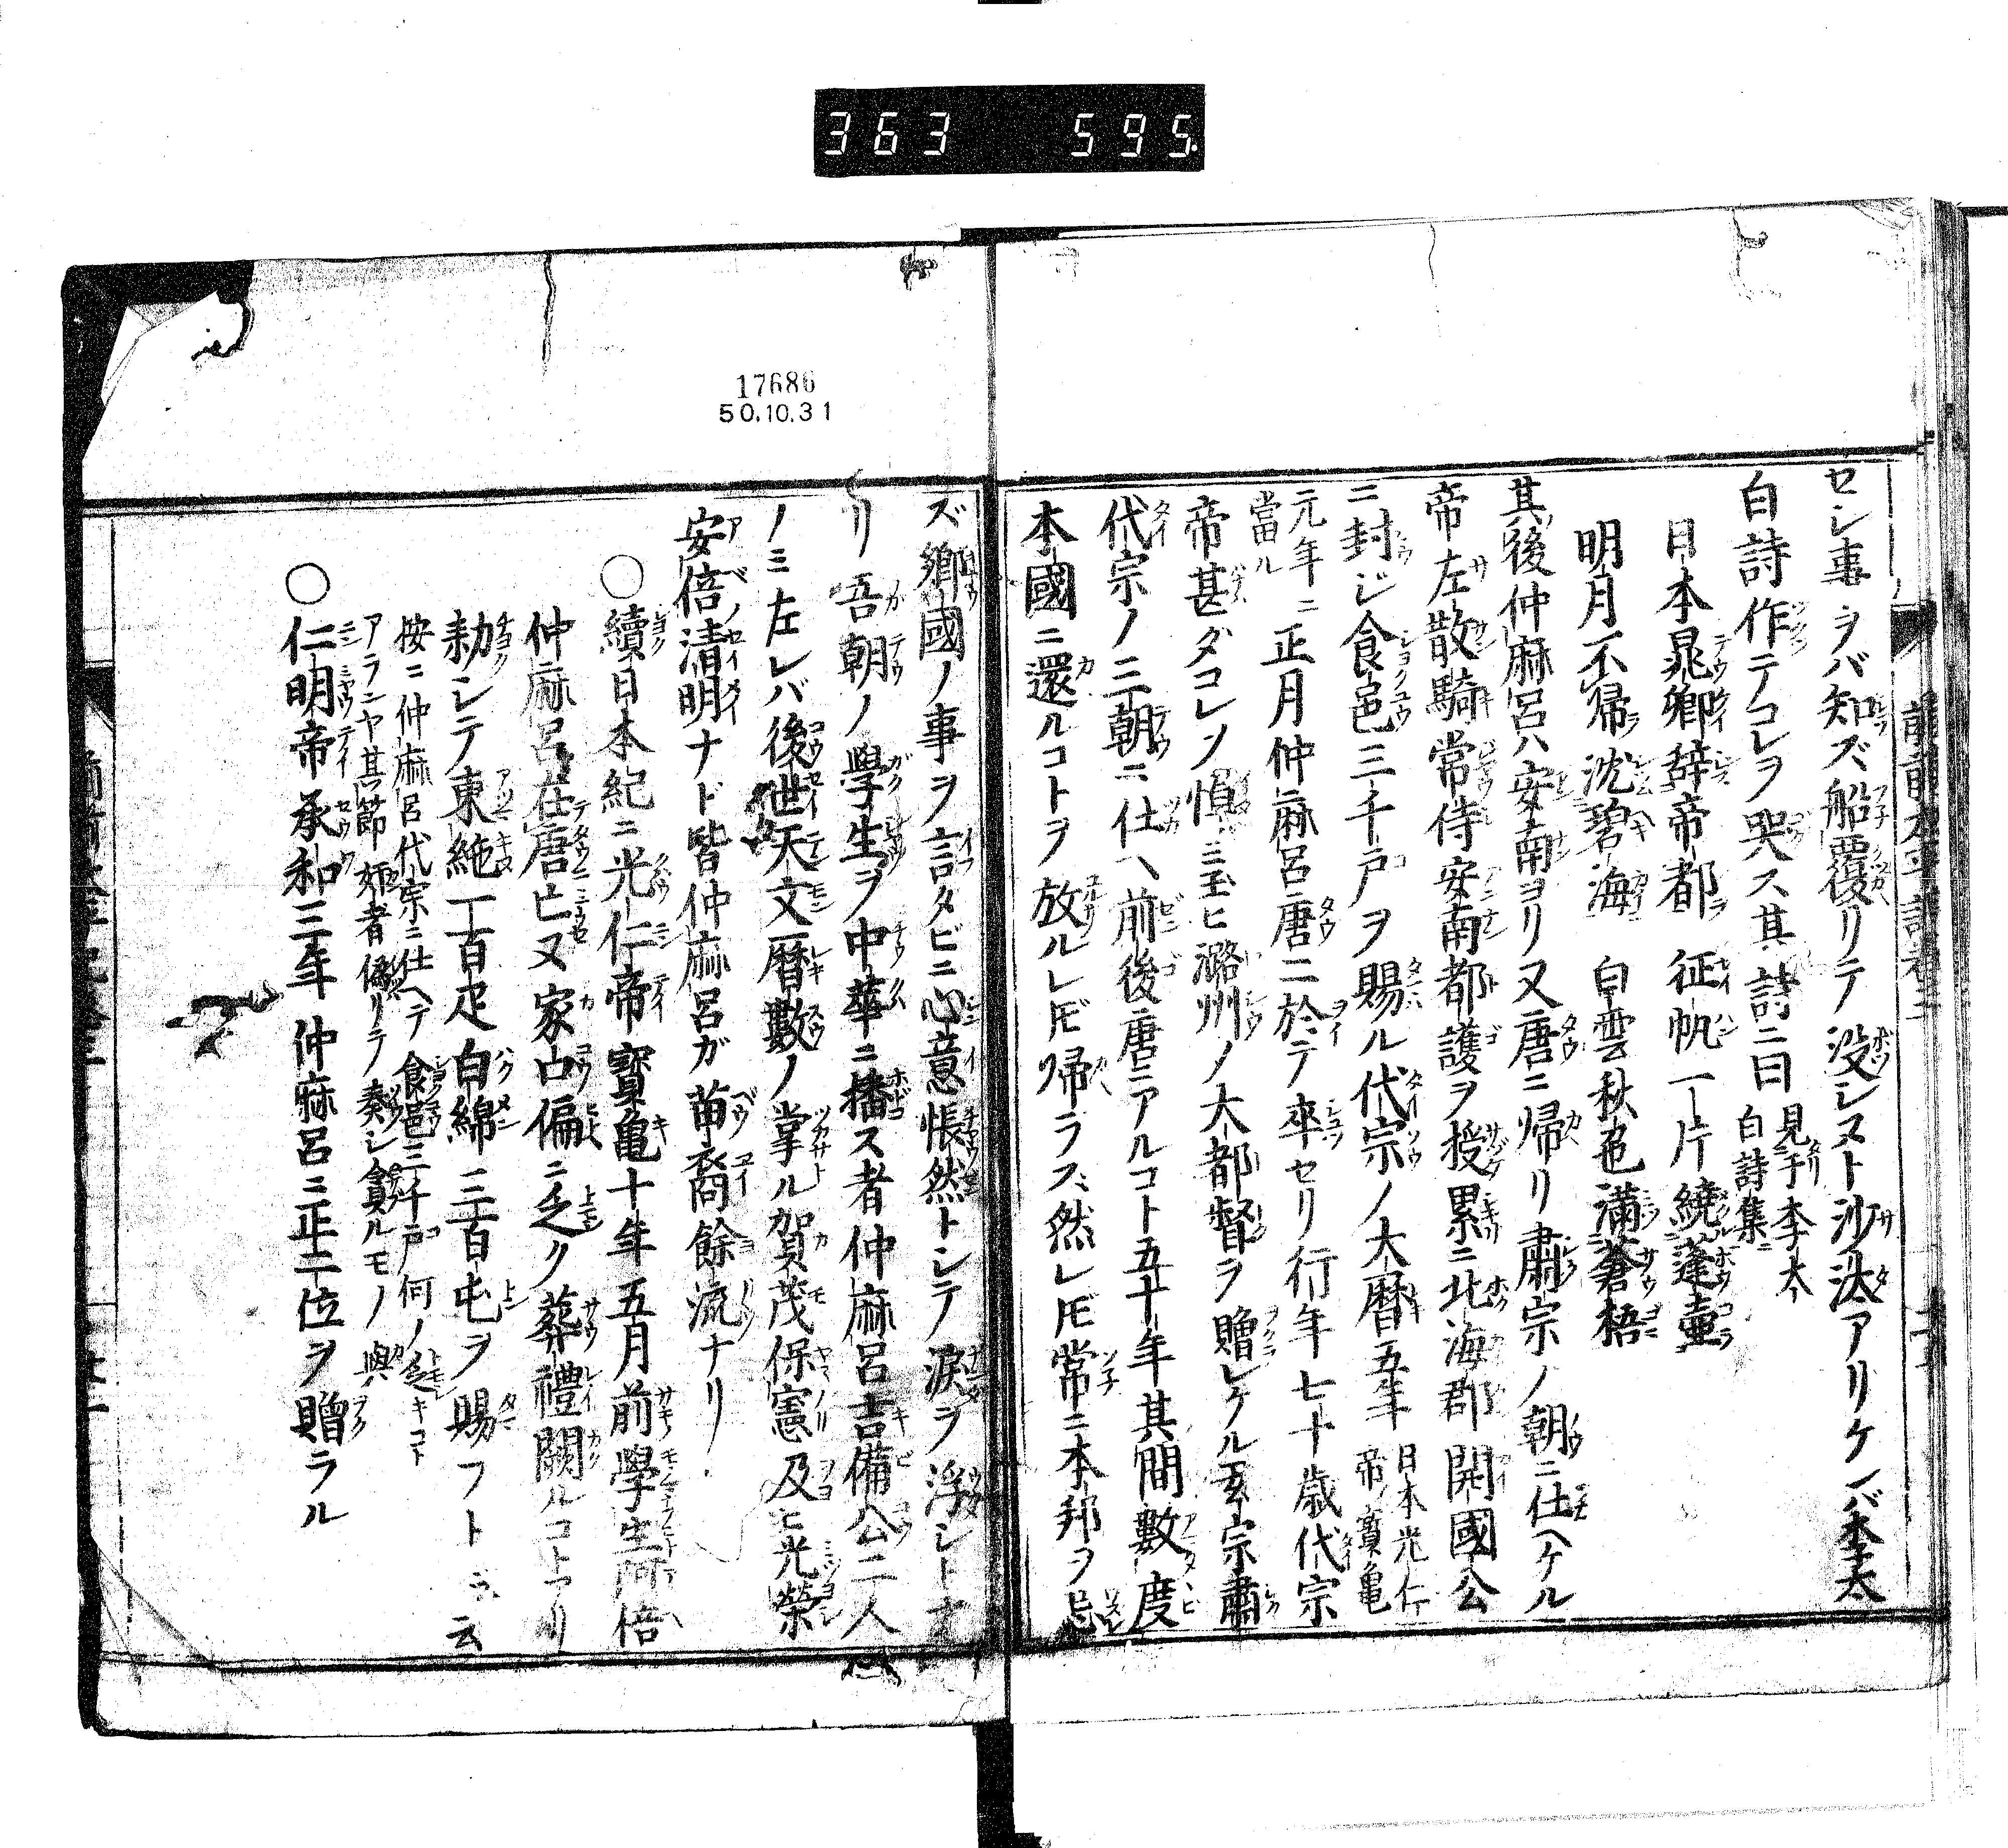 363 595
17686
50.10.31
セシ事ヲバ知ズ船覆リテ没シヌト沙汰アリケレバ李太
白詩作テコレヲ哭ス其詩ニ曰 見于李太白詩集ニ
日本晁卿辞帝都 征帆一片繞蓬壷
明月不帰沈碧海 白雲秋色滿蒼梧
其後仲麻呂ハ安南ヨリ又唐ニ帰リ肅宗ノ朝ニ仕ヘケル
帝左散騎常侍安南都護ヲ授累ニ北海郡開國公
ニ封ジ食邑三千戸ヲ賜ル代宗ノ大暦五年 日本光仁帝ノ寳亀
元年ニ當ル 正月仲麻呂唐ニ於テ卒セリ行年七十歳代宗
帝甚ダコレヲ惜ミ玉ヒ潞州ノ大都督ヲ贈レケル玄宗肅
代宗ノ三朝ニ仕ヘ前後唐ニアルコト五十年其間數度
本國ニ還ルコトヲ放ルレ𪜈帰ラズ然レ𪜈常ニ本邦ヲ忘
ズ郷國ノ事ヲ言タビニ心意悵然トシテ涙ヲ浮シトナ
リ吾朝ノ學生ヲ中華ニ播ス者仲麻呂吉備公二人
ノミ左レバ後世天文暦數ノ掌ル賀茂保憲及ヒ光榮
安倍清明ナド皆仲麻呂ガ苗裔餘流ナリ
○續日本紀ニ光仁帝寳亀十年五月前學生阿倍
仲麻呂在唐亡又家口偏ニ乏ク葬禮闕ルコトアリ
勅シテ東絁一百疋白綿三百屯ヲ賜フト云云
按ニ仲麻呂代宗ニ仕ヘテ食邑三千戸何ノ乏キコト
アランヤ其節姧者偽リテ奏シ貪ルモノ歟
○仁明帝承和三年仲麻呂ニ正二位ヲ贈ラル